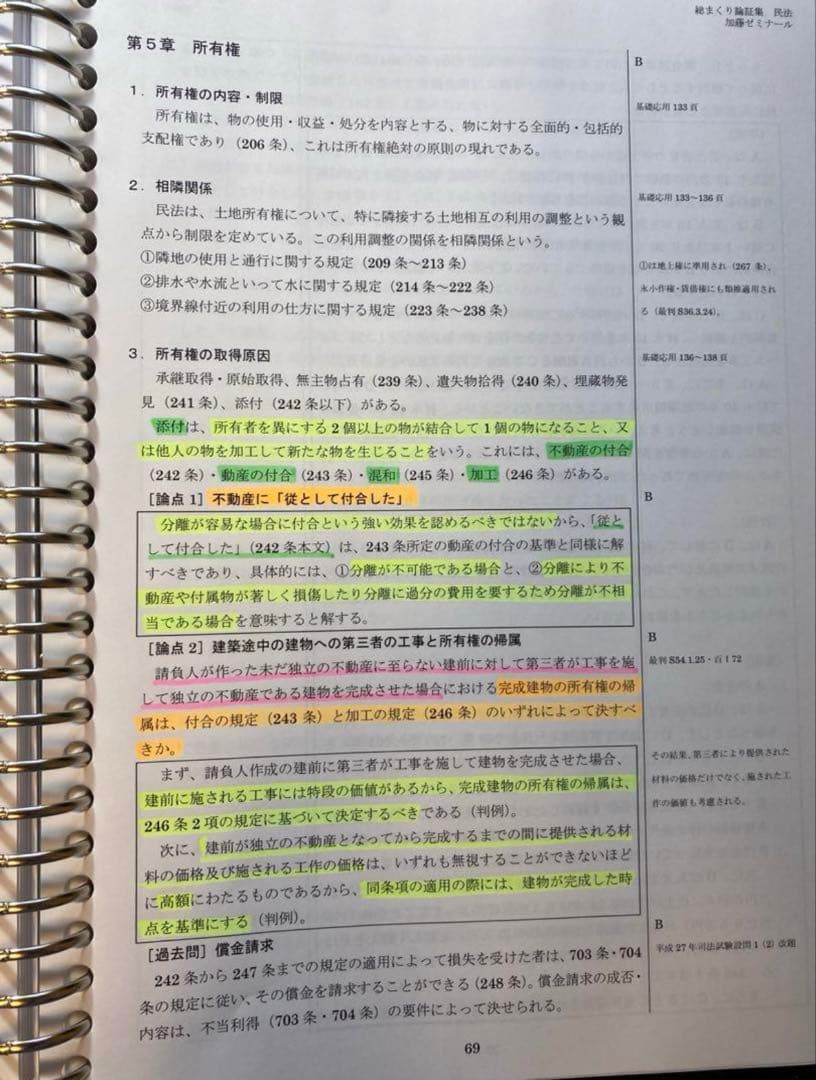 総まくり論証集 民法
加藤ゼミナール
第5章 所有権
B
1．所有権の内容・制限
基礎応用 133 頁
所有権は、物の使用・収益・処分を内容とする、物に対する全面的・包括的
支配権であり（206 条）、これは所有権絶対の原則の現れである。
2．相隣関係
基礎応用 133～136 頁
民法は、土地所有権について、特に隣接する土地相互の利用の調整という観
点から制限を定めている。この利用調整の関係を相隣関係という。
①隣地の使用と通行に関する規定（209 条～213 条）
②排水や水流といって水に関する規定（214 条～222 条）
③境界線付近の利用の仕方に関する規定（223 条～238 条）
①は地上権に準用され（267 条）、
永小作権・賃借権にも類推適用され
る（最判 S36.3.24）。
3．所有権の取得原因
基礎応用 136～138 頁
承継取得・原始取得、無主物占有（239 条）、遺失物拾得（240 条）、埋蔵物発
見（241 条）、添付（242 条以下）がある。
添付は、所有者を異にする 2 個以上の物が結合して 1 個の物になること、又
は他人の物を加工して新たな物を生じることをいう。これには、不動産の付合
（242 条）・動産の付合（243 条）・混和（245 条）・加工（246 条）がある。
［論点 1］不動産に「従として付合した」
B
分離が容易な場合に付合という強い効果を認めるべきではないから、「従と
して付合した」（242 条本文）は、243 条所定の動産の付合の基準と同様に解
すべきであり、具体的には、①分離が不可能である場合と、②分離により不
動産や付属物が著しく損傷したり分離に過分の費用を要するため分離が不相
当である場合を意味すると解する。
［論点 2］建築途中の建物への第三者の工事と所有権の帰属
B
最判 S54.1.25・百Ⅰ72
請負人が作った未だ独立の不動産に至らない建前に対して第三者が工事を施
して独立の不動産である建物を完成させた場合における完成建物の所有権の帰
属は、付合の規定（243 条）と加工の規定（246 条）のいずれによって決すべ
きか。
まず、請負人作成の建前に第三者が工事を施して建物を完成させた場合、
建前に施される工事には特段の価値があるから、完成建物の所有権の帰属は、
246 条 2 項の規定に基づいて決定するべきである（判例）。
次に、建前が独立の不動産となってから完成するまでの間に提供される材
料の価格及び施される工作の価格は、いずれも無視することができないほど
に高額にわたるものであるから、同条項の適用の際には、建物が完成した時
点を基準にする（判例）。
その結果、第三者により提供された
材料の価格だけでなく、施された工
作の価値も考慮される。
［過去問］償金請求
B
平成 27 年司法試験設問 1（2）改題
242 条から 247 条までの規定の適用によって損失を受けた者は、703 条・704
条の規定に従い、その償金を請求することができる（248 条）。償金請求の成否・
内容は、不当利得（703 条・704 条）の要件によって決せられる。
69